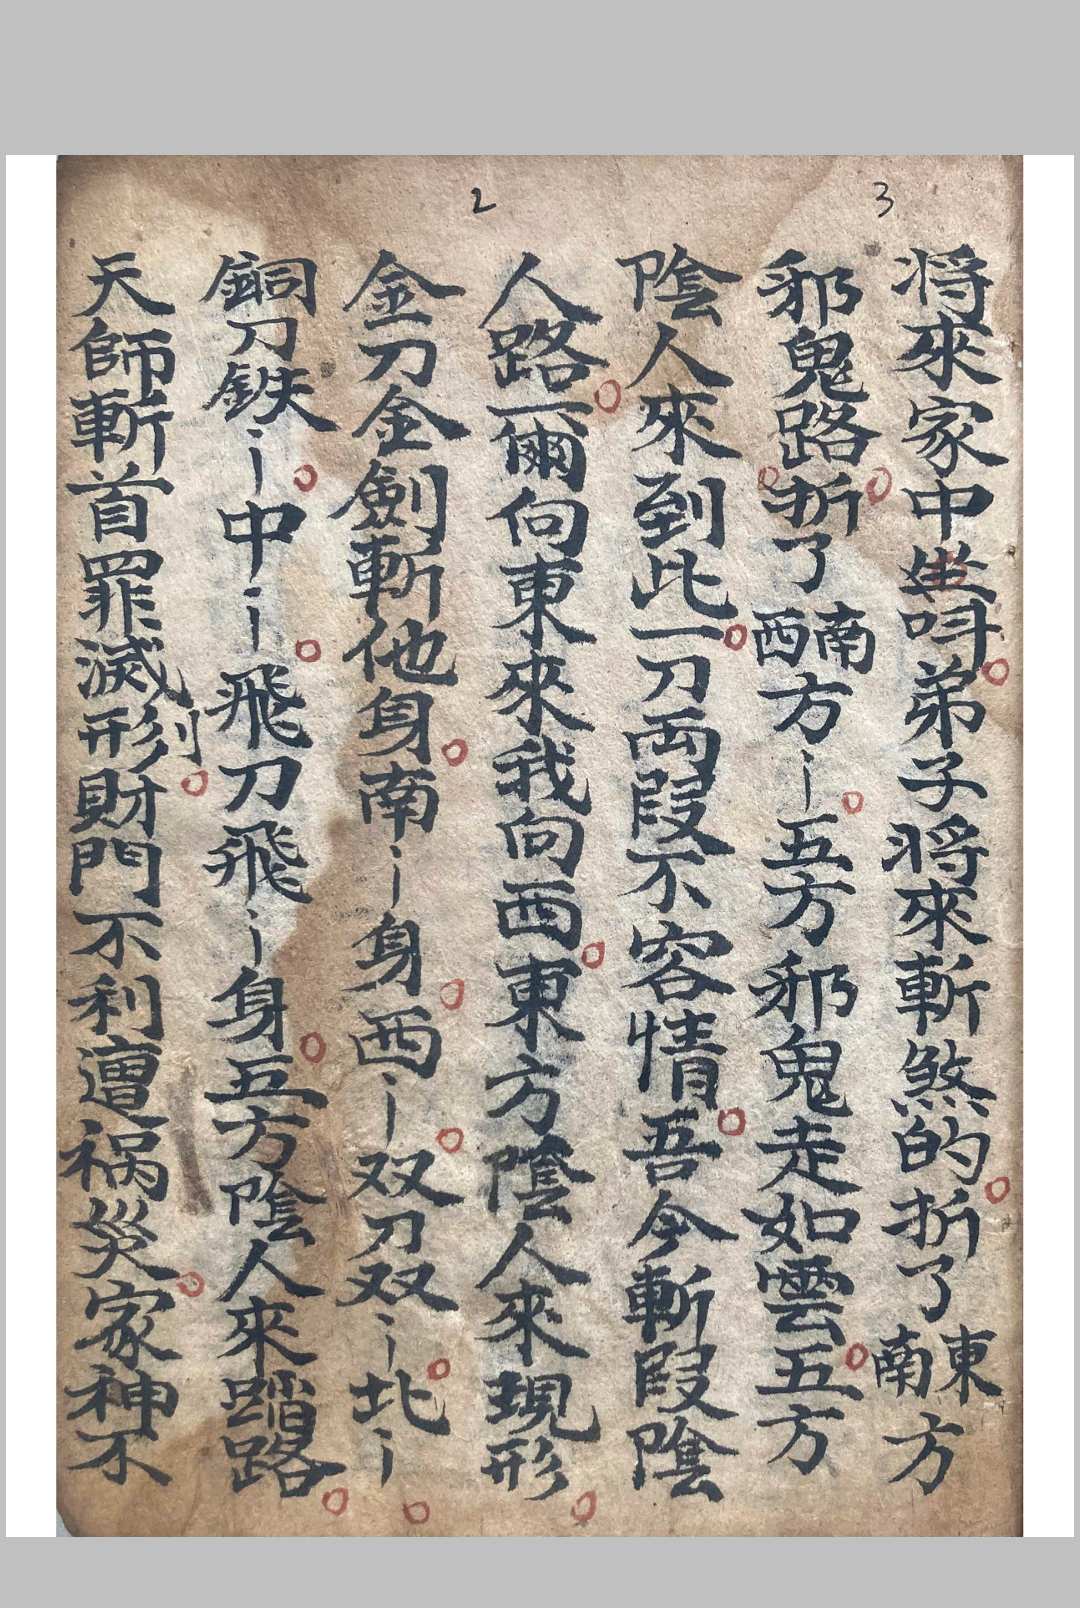 3
2
將來家中坐叫弟子將來斬煞的折了東南方
邪鬼路折了南西方〻五方邪鬼走如雲五方
陰人來到此一刀両段不容情吾今斬段陰
人路爾向東來我向西東方陰人來現形
金刀金劍斬他身南〻身西〻双刀双〻北〻
銅刀鉄〻中〻飛刀飛〻身五方陰人來踏路
天師斬首罪滅形列財門不利遭祸災家神不